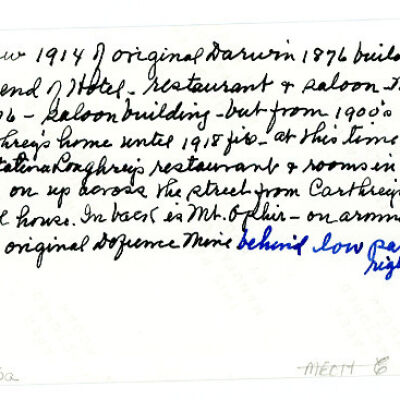 w 1914 of original Darwin 1876 buil
end of Hotel - restaurant & saloon -
6 - saloon building - but from 1900's
home until 1918 fire - at this time
restaurant & rooms in
on up across the street from
l house. In back is Mt. Ophir - on aroun
original Defience Mine behind low pa
righ
MECH 6